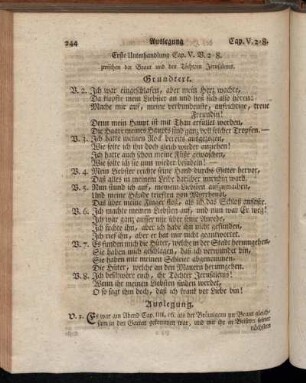 244 Auslegung Cap. V. 2-8.
Erste Unterhandlung Cap. V. V. 2-8.
zwischen der Braut und den Töchtern Jerusalems.
Grundtext.
V. 2. Ich war eingeschlafen, aber mein Herz wachte,
Da klopfte mein Liebster an und ließ sich also hören:
Mache mir auf, meine verbundenste, aufrichtige, treue
Freundin!
Denn mein Haupt ist mit Thau erfüllet worden,
Die Haare meines Hauptes sind ganz voll seichter Tropfen. —
V. 3. Ich hatte meinen Rock bereits ausgezogen,
Wie solte ich ihn doch gleich wieder angiehen!
Ich hatte auch schon meine Füße gewaschen,
Wie solte ich sie nun wieder besudeln! —
V. 4. Mein Liebster reckte seine Hand durchs Gitter hervor,
Daß alles in meinem Leibe darüber unruhig ward.
V. 5. Nun stund ich auf, meinem Liebsten aufzumachen,
Und meine Hände troffen von Myrrhenöl,
Das über meine Finger floß, als ich das Schloß anfaßte.
V. 6. Ich machte meinem Liebsten auf, und nun war Er weg!
Ich war ganz außer mir über seine Abrede,
Ich suchte ihn, aber ich habe ihn nicht gefunden,
Ich rief ihn, aber er hat mir nicht geantwortet.
V. 7. Es funden mich die Hüter, welche in der Stadt herumgehen,
Sie haben mich geschlagen, daß ich verwundet bin,
Sie haben mir meinen Schleier abgenommen,
Die Hüter, welche an den Mauern herumgehen.
V. 8. Ich beschwöre euch, ihr Töchter Jerusalems!
Wenn ihr meinen Liebsten finden werdet,
O so sagt ihm doch, daß ich krank vor Liebe bin!
Auslegung.
V. 2. Es war am Abend Cap. IIII. als der Bräutigam zur Braut
in den Garten gekommen war, und mit ihr in
nächsten